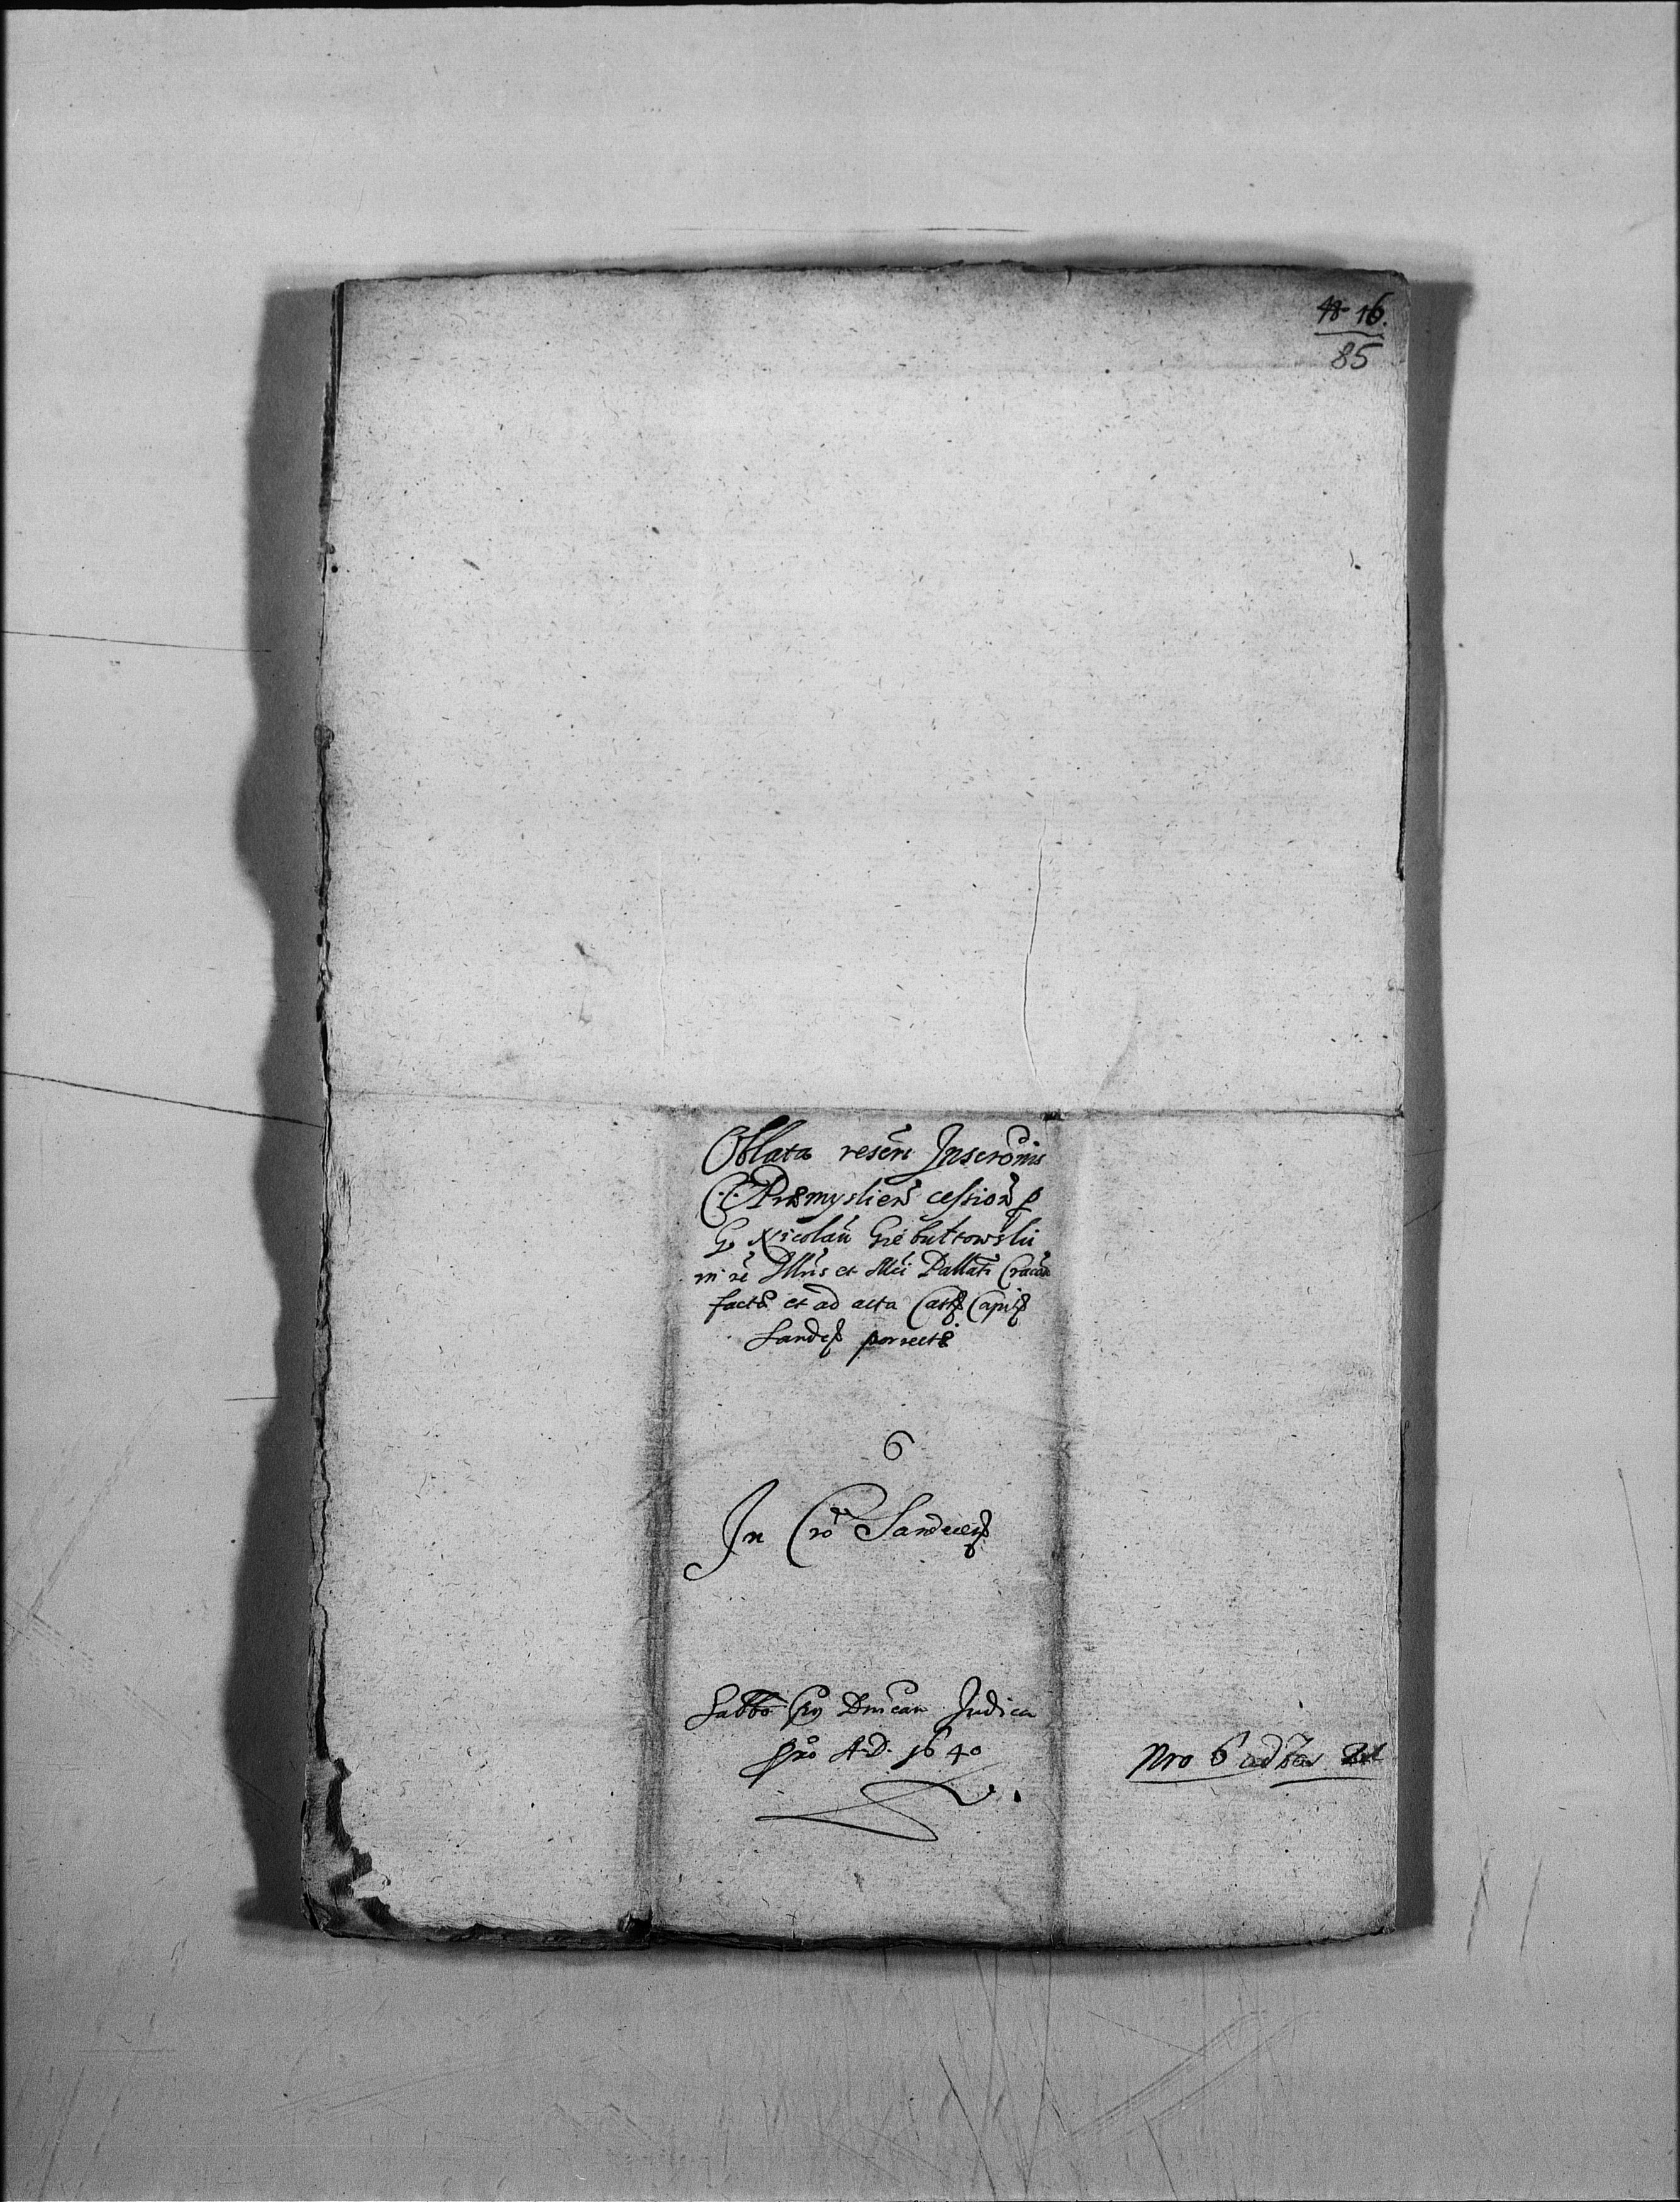 18 16.
85
Oblata resere Inscrōnis
C. C. Præmyslien cession p
G. Nicolaū Grebultowski
in rē Illris et Mci Pallati Cracōn
factæ et ad acta Castr Capit
Sandec porrectæ
6
In Cro Sandecen
Sabbo Dnicam Judica
pro A. D. 1640
Nro 6 ad